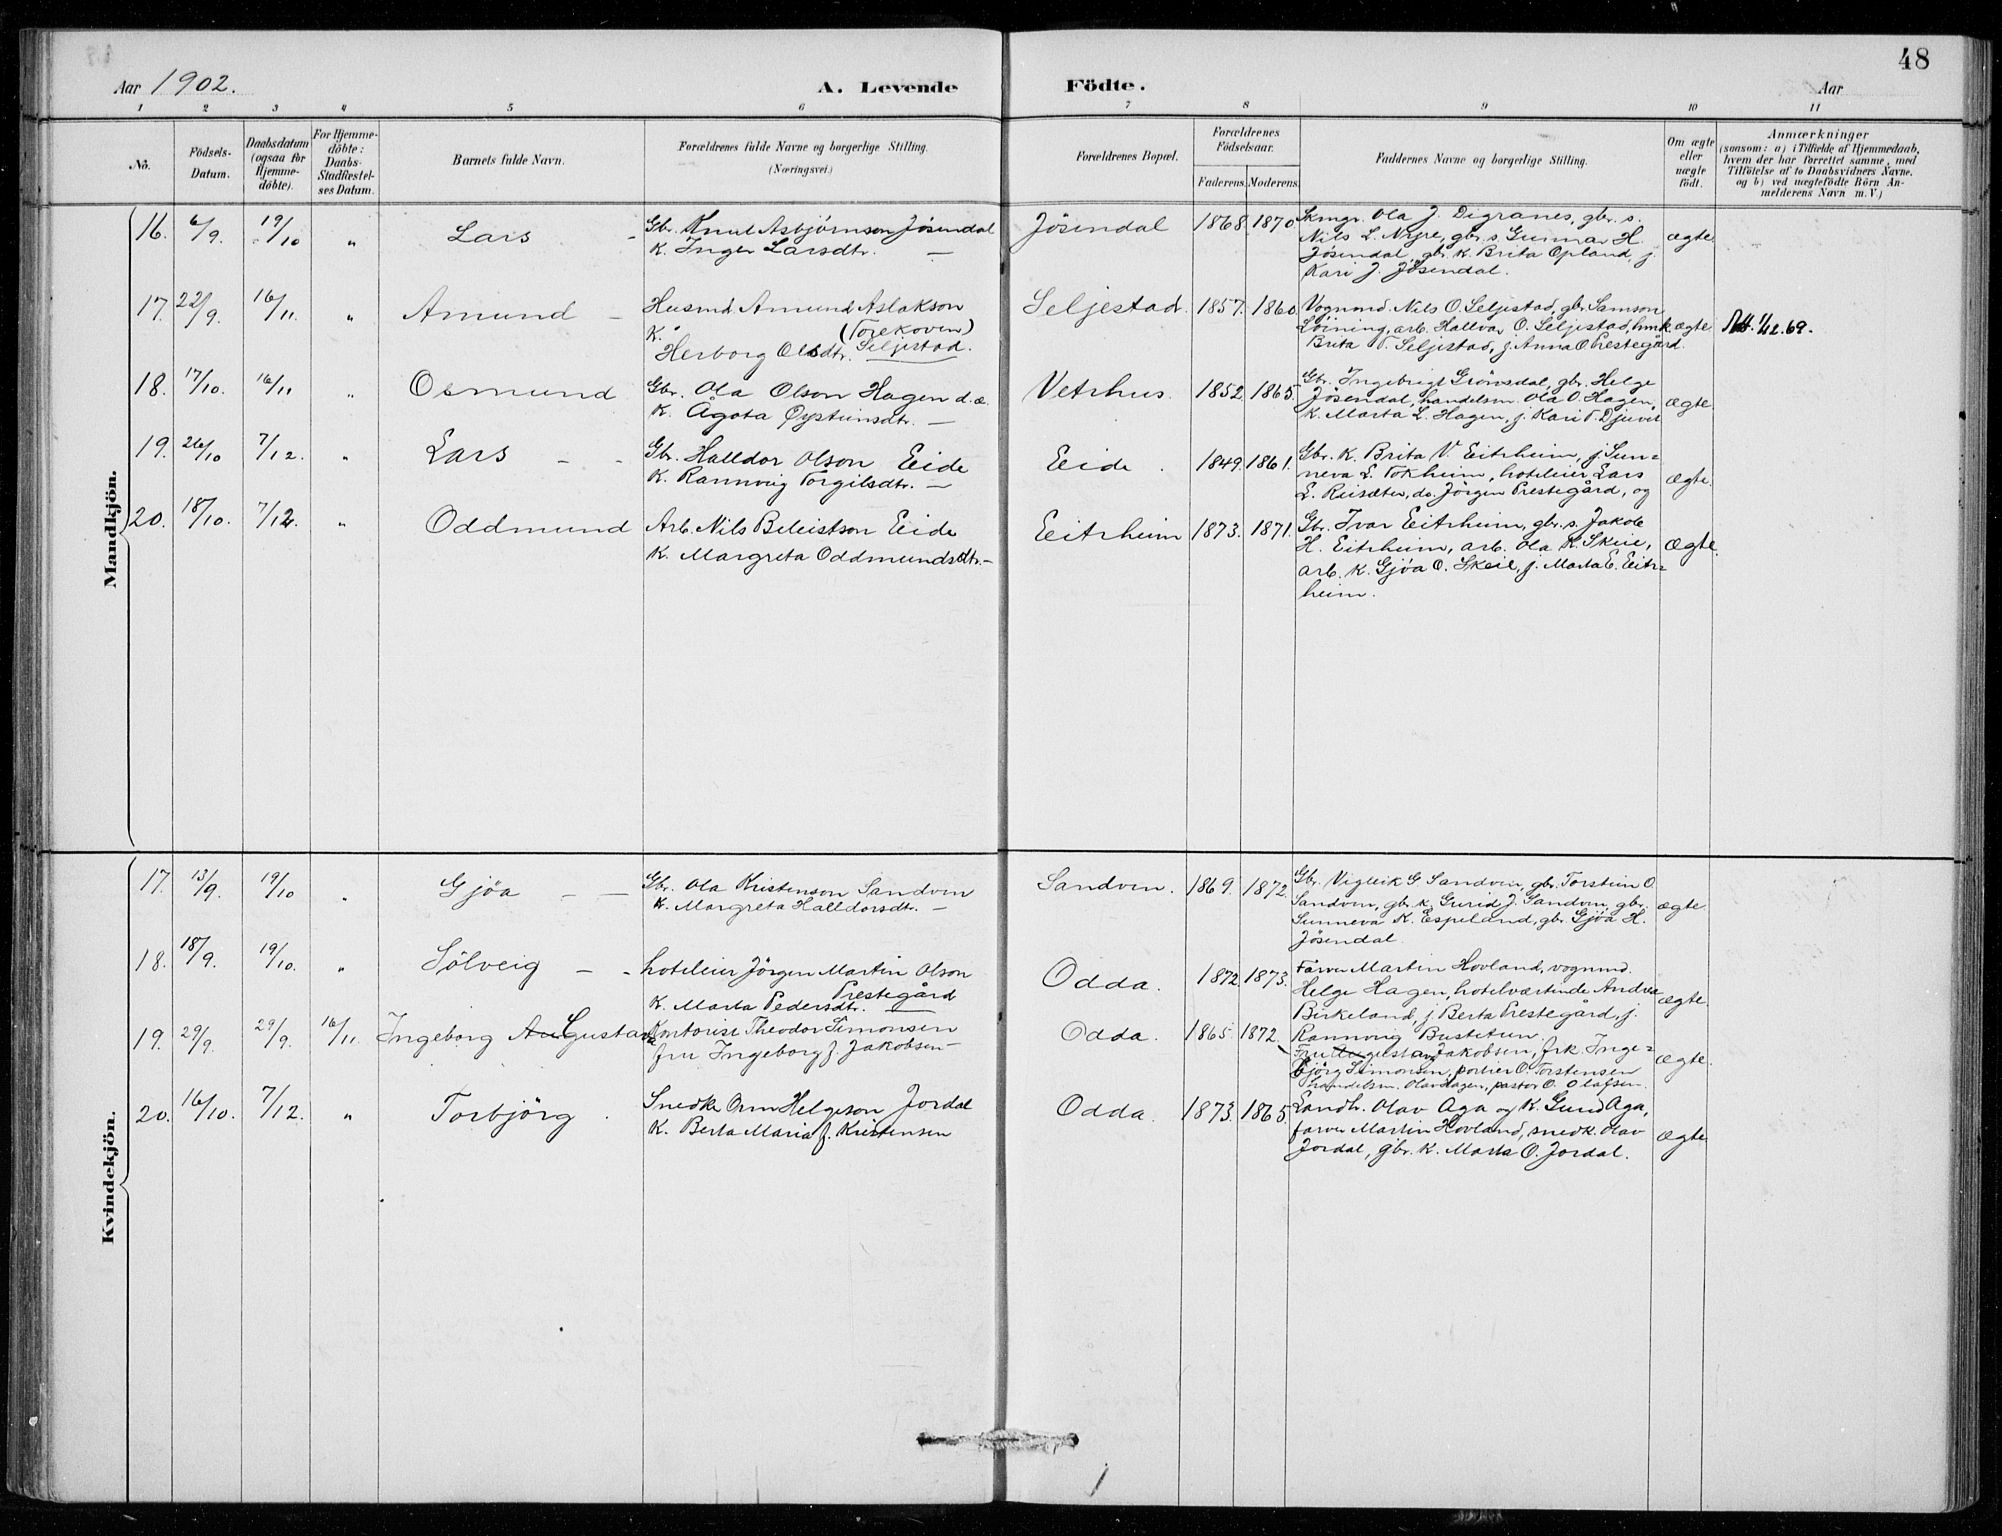 48
Aar 1902. A. Levende Födte. Aar
1 2 3 4 5 6 7 8 9 10 11
No. Födsels-Datum. Daabsdatum (ogsaa for Hjemme-döbte). For Hjemme-döbte: Daabs-Stadfæstel-ses Datum. Barnets fulde Navn. Forældrenes fulde Navne og borgerlige Stilling. (Næringsvei.) Forældrenes Bopæl. Forældrenes Födselsaar. Faderens. Moderens. Faddernes Navne og borgerlige Stilling. Om ægte eller uægte födt. Anmærkninger (saasom: a) i Tilfælde af Hjemmedaab, hvem der har forrettet samme, med Tilföielse af to Daabsvidners Navne. og b) ved uægtefödte Börn An-melderens Navn m. V.)
Mandkjön.
16. 6/9. 19/10 " Lars - Gbr. Knut Asbjörnson Jösendal
K. Inger Larsdtr. —
Jösendal 1868. 1870. Skmgr. Ola J. Digranes, gbr. s.
Nils L. Nyre, gbr. s. Gunnar H.
Jösendal, gbr. K. Brita Opland, j.
Kari J. Jösendal.
ægte.
17. 22/9. 16/11. " Amund - Husmd. Amund Aslakson
K. (Torekoven)
Herborg Olsdtr. Seljestad.
Seljestad. 1857. 1860. Vognmd. Nils O. Seljestad, gbr. Samson
Löining, arb. Hallvar O. Seljestad, hmk.
Brita T. Seljestad, j. Anna O. Prestegård.
ægte 1/12.69.
18. 17/10. 16/11 " Osmund Gbr. Ola Olson Hagen d.æ.
K. Ågota Öysteinsdtr. —
Vetrhus. 1852. 1865. Gbr. Ingebrigt Grönsdal, gbr. Helge
Jösendal, handelsm. Ola O. Hagen,
K. Marta L. Hagen, j. Kari T. Djuvik
ægte.
19. 26/10 7/12. " Lars - - Gbr. Halldor Olson Eide
K. Rannveig Torgilsdtr. —
Eide. 1849. 1861. Gbr. K. Brita V. Eitrheim, j. Sun=
neva L. Tokheim, hoteleier Lars
L. Reisæter, do. Jörgen Prestegård, og
ægte.
20. 18/10. 7/12. " Oddmund Arb. Nils Beleistson Eide
K. Margreta Oddmundsdtr. —
Eitrheim 1873. 1871. Gbr. Ivar Eitrheim, gbr. s. Jakob
H. Eitrheim, arb. Ola K. Skeie,
arb. K. Gjöa O. Skeie, j. Marta E. Eitr=
heim.
ægte.
Kvindekjön.
17. 13/9. 19/10 " Gjöa - — Gbr. Ola Kristenson Sandven
K. Margreta Halldorsdtr. —
Sandven. 1869. 1872. Gbr. Vigleik G. Sandven, gbr. Torstein O.
Sandven, gbr. K. Gurid J. Sandven, gbr.
Sunneva K. Espeland, gbr. Gjöa H.
Jösendal.
ægte.
18. 18/9. 19/10. " Sölveig - - hoteleier Jörgen Martin Olson
Prestegård
K. Marta Pedersdtr.
Odda. 1872. 1873. Farver Martin Hovland, vognmd.
Helge Hagen, hotelværtinde Andrea
Birkeland, j. Berta Prestegård, j.
Rannveig Bustetun
ægte
19. 29/9. 29/9. 16/11. Ingeborg Augusta Kontorist Theodor Simonsen
fru Ingeborg f. Jakobsen —
Odda. 1865. 1872. Fru Jakobsen, frk. Inge=
björg Simonsen, portier O. Torstensen
handelsm. Olav Hagen, pastor O. Olafsen.
ægte.
20. 16/10. 7/12. " Torbjörg. Snedk. Orm Helgeson Jordal
K. Berta Maria f. Kristensen
Odda. 1873. 1865. Landh. Olav Aga og K. Gurid Aga,
farver Martin Hovland, snedk. Olav
Jordal, gbr. K. Marta O. Jordal.
ægte